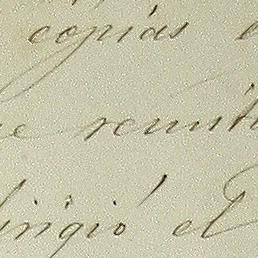 copias
remit
irigió el